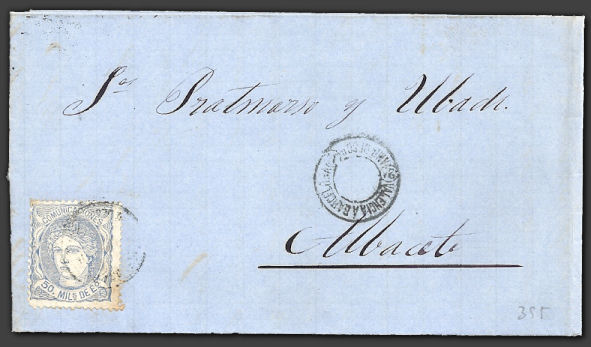 Sres Pratmarso y Ubach.
VALENCIA A BARCELONA
Albacete
COMUNICACIONES
50 MILS DE ES
395